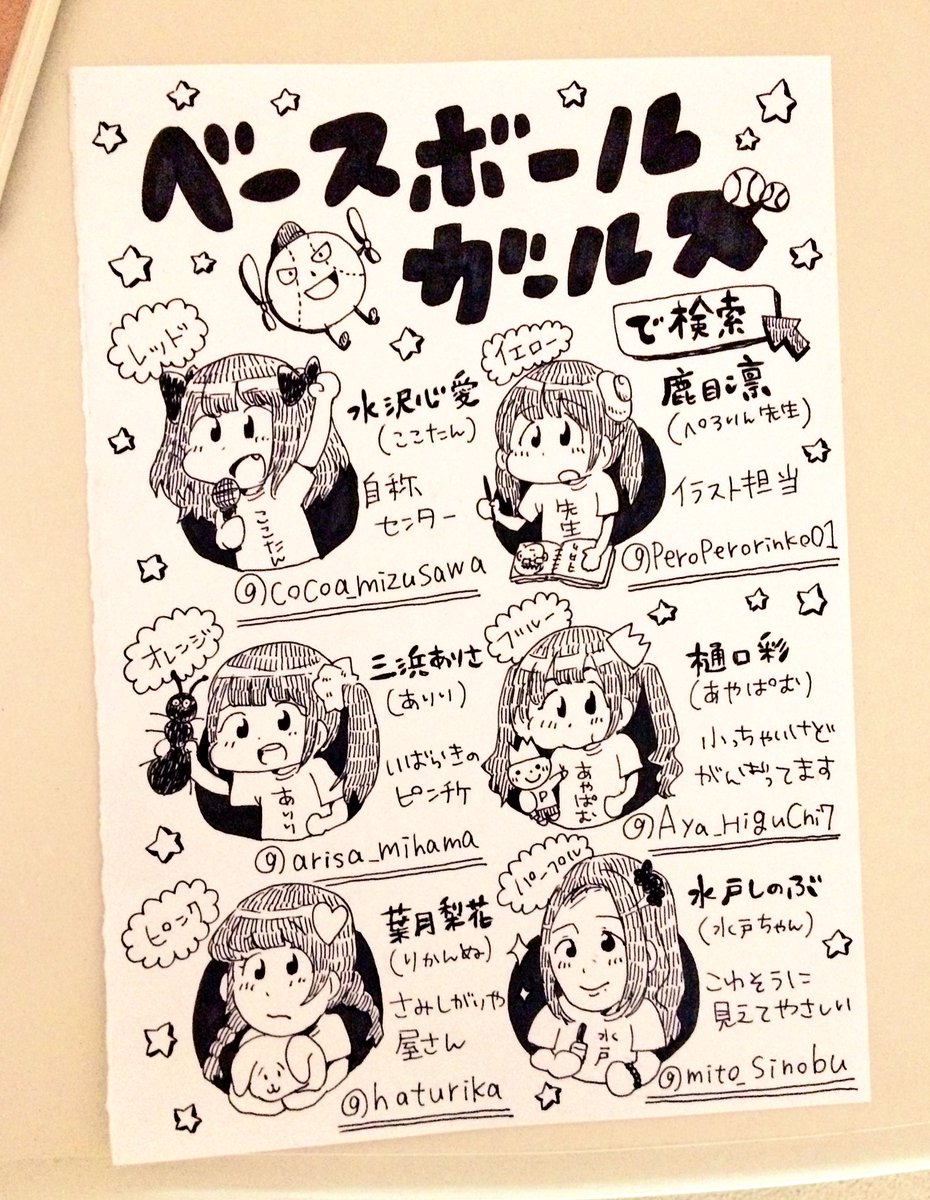 ベースボール
ガールズ
で検索
レッド
水沢心愛
(ここたん)
自称
センター
ここたん
@cocoamizusawa
イエロー
鹿目凛
(ぺろりん先生)
イラスト担当
先生
@PeroPerorinko01
オレンジ
三浜ありさ
(ありり)
いばらきの
ピンチケ
ありり
@arisa_mihama
ブルー
樋口彩
(あやぱむ)
小っちゃいけど
がんばってます
あやぱむ
P
@Aya_HiguChi7
ピンク
葉月梨花
(りかんぬ)
さみしがりや
屋さん
@haturika
パープル
水戸しのぶ
(水戸ちゃん)
こわそうに
見えてやさしい
水戸
@mito_Sinobu